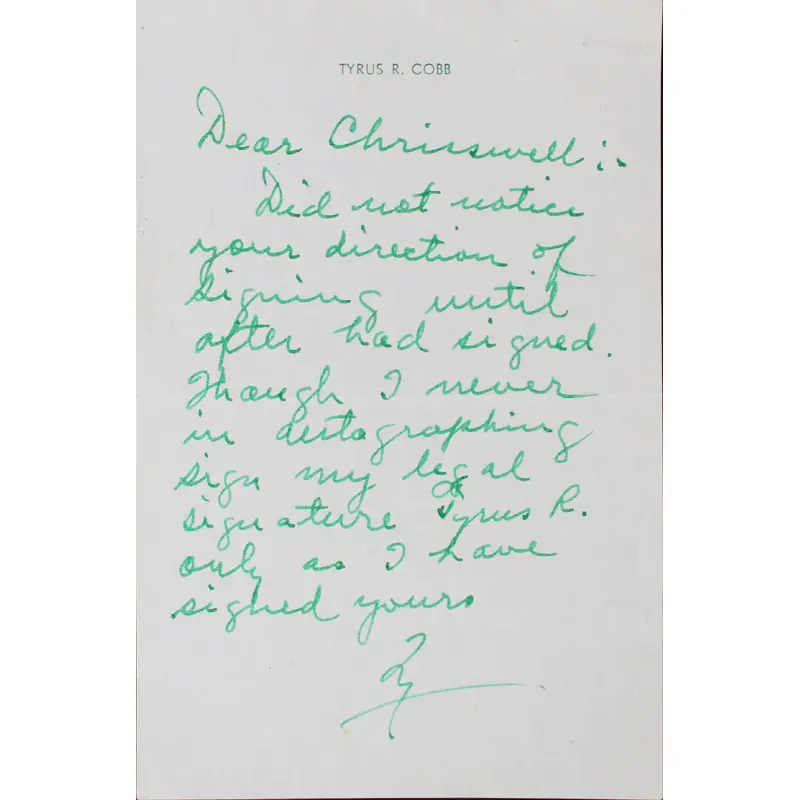 TYRUS R. COBB
Dear Chrisswell :-
Did not notice
your direction of
signing until
after had signed.
Though I never
in autographing
sign my legal
signature of Tyrus R.
only as I have
signed yours
Ty